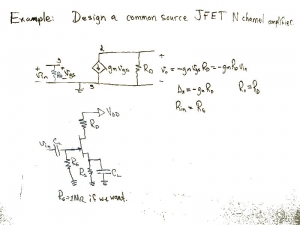 Example: Design a common source JFET N channel amplifier.
2
g
+ + +
Vin RG Vgs gmVgs RD Vo = -gmVgsRD = -gmRDVin
- - -
s
Av = -gmRD Ro = RD
Rin = RG
VDD
RD
Vin
RG RS CL
RG = 1MΩ if we want.